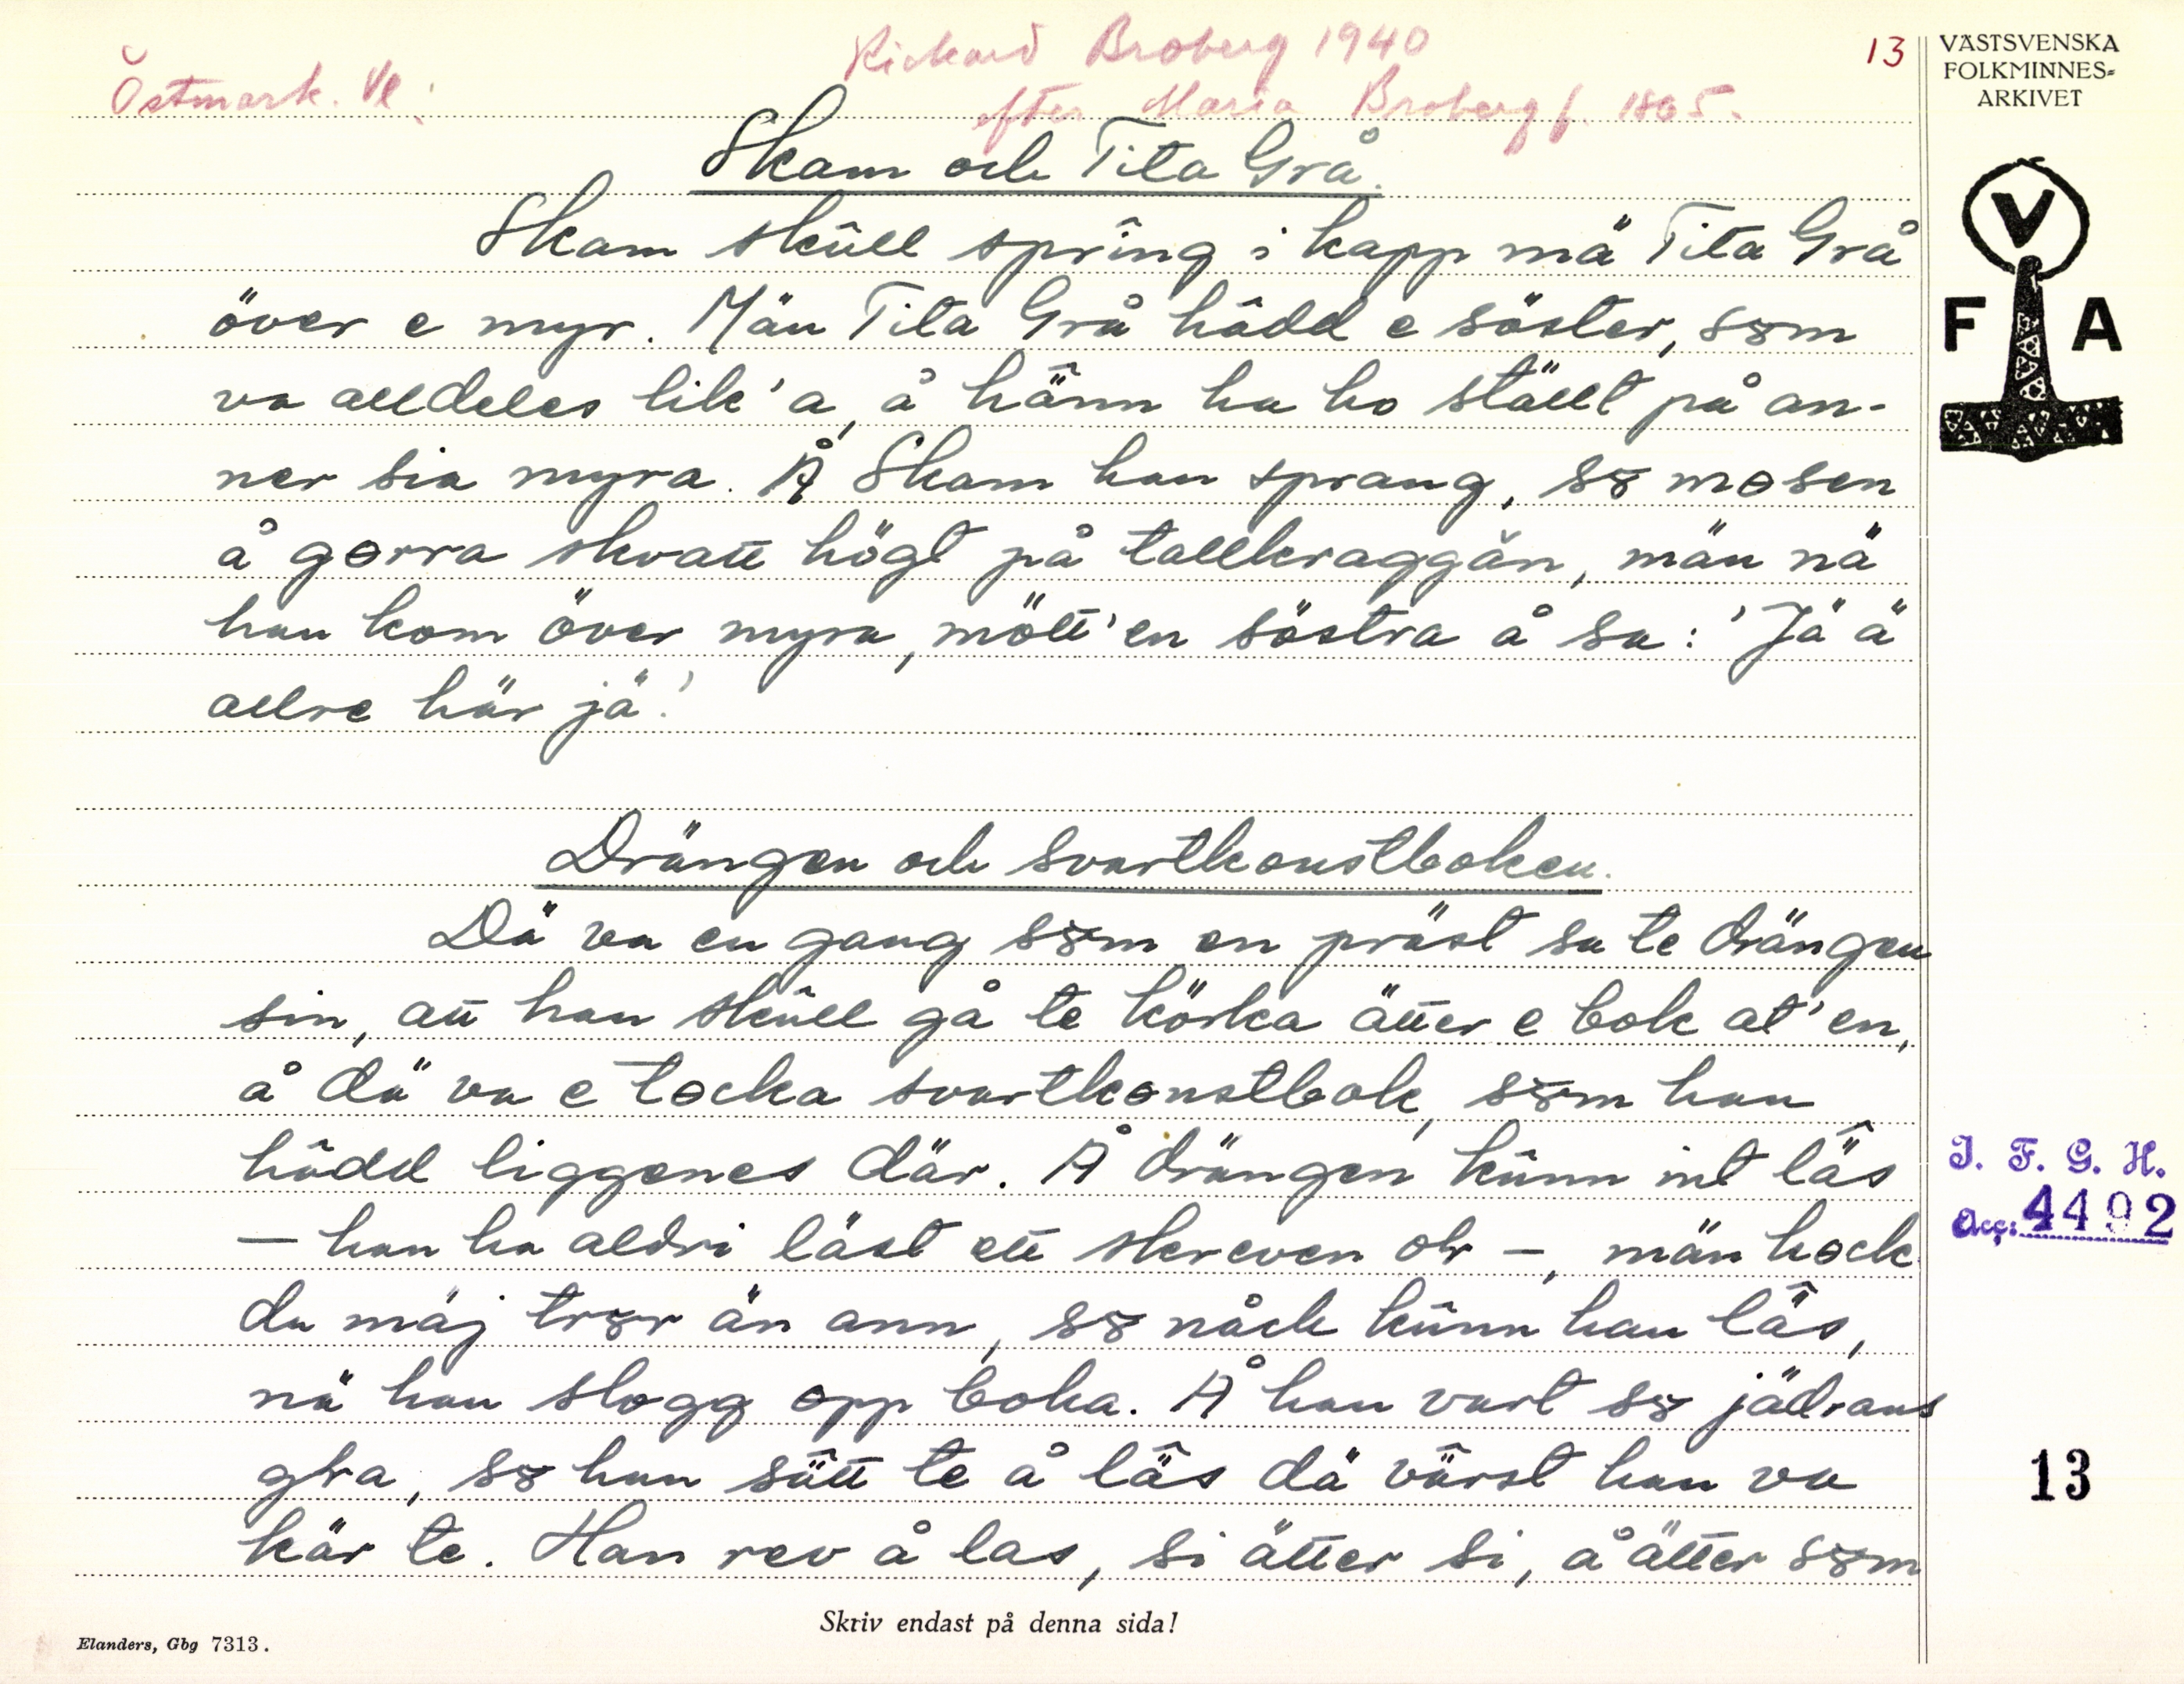 Rickard Broberg 1940
13
VÄSTSVENSKA
FOLKMINNES=
ARKIVET
Östmark. Vl.
efter Maria Broberg f. 1865.
Skam och Tita Grå.
V
F A
Skam skûll sprîng i kapp mä Tita Grå
över e myr. Män Tita Grå hâdd e söster, sȣm
va alldeles lik'a, å hä̂nn ha ho ställt på an-
ner sia myra. Å Skam han sprang, sȣ mɵsen
å gɵrra skvatt högt på tallkraggän, män nä
han kom över myra, mött'en söstra å sa: 'Jä ä
allre här jä!'
Drängen och svartkonstboken.
Dä va en gang sȣm en präst sa te drängen
sin, att han skûll gå te körka ätter e bok at'en,
å dä va e tɵcka svartkɵnstbok, sȣm han
hâdd liggenes där. Å drängen kûnn int lä̂s
— han ha aldri läst ett skreven ol —, män hɵck
du mäj trȣr än ann, sȣ nåck kûnn han lä̂s,
nä han slogg ɵpp boka. Å han vart sȣ jädrans
gla, sȣ han sä̂tt te å lä̂s dä vä̂rst han va
kär te. Han rev å las, si ätter si, å ätter sȣm
J. F. G. H.
Acc: 4492
13
Skriv endast på denna sida!
Elanders, Gbg 7313.